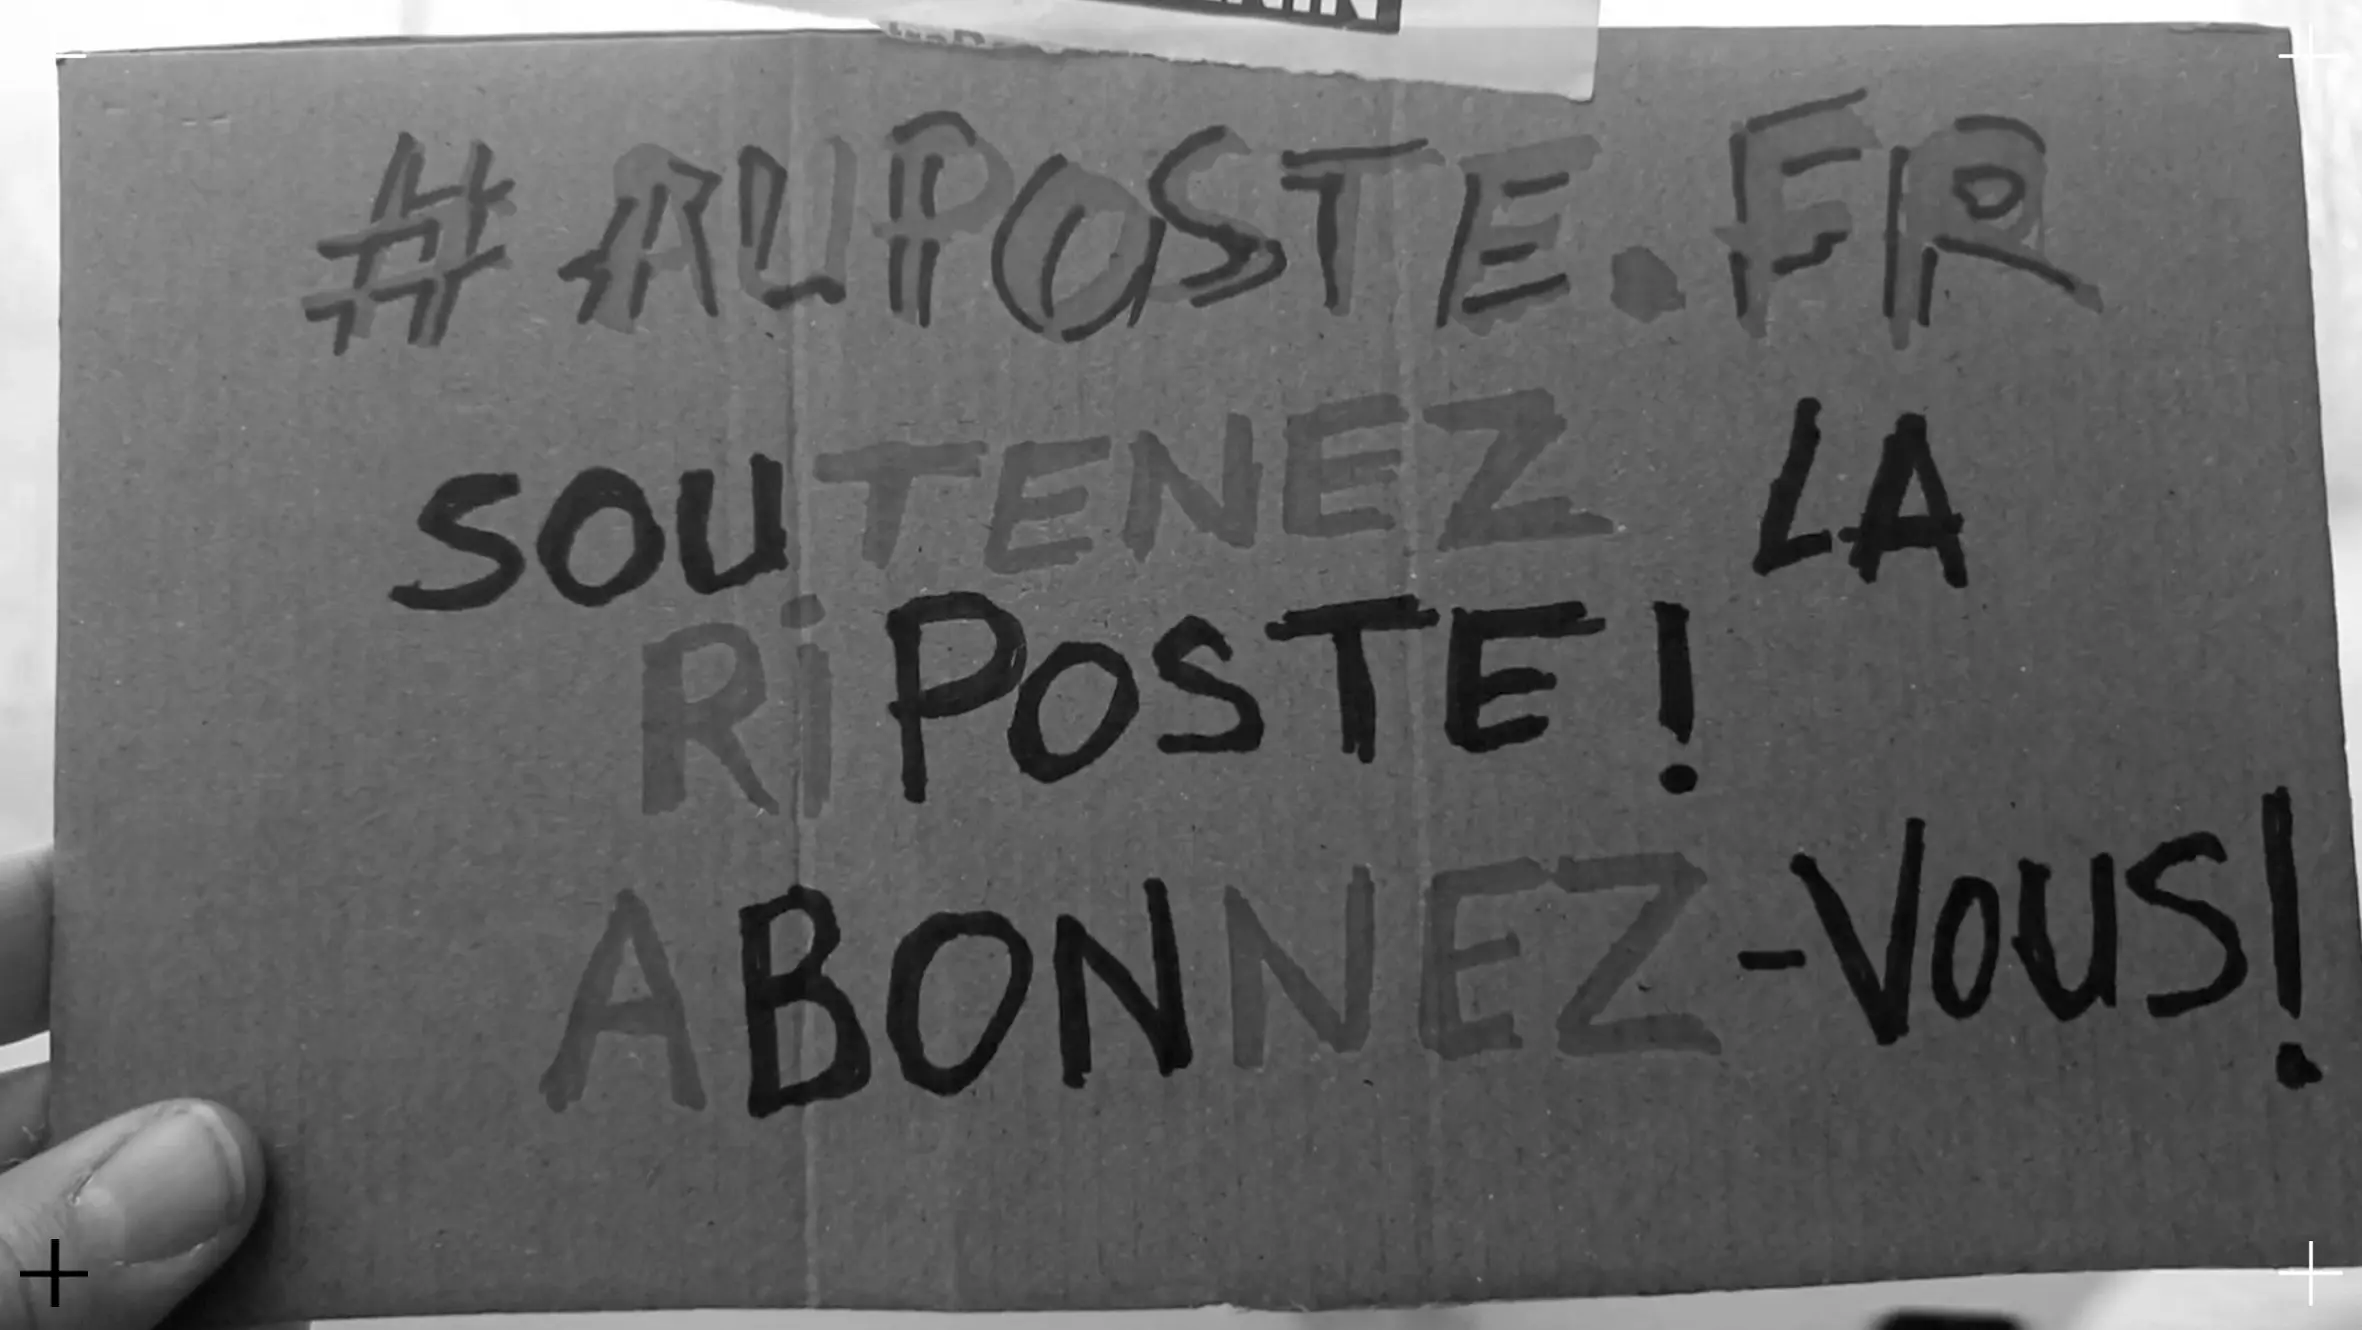 #AUPOSTE.FR
SOUTENEZ LA
RiPOSTE!
ABONNEZ-VOUS!